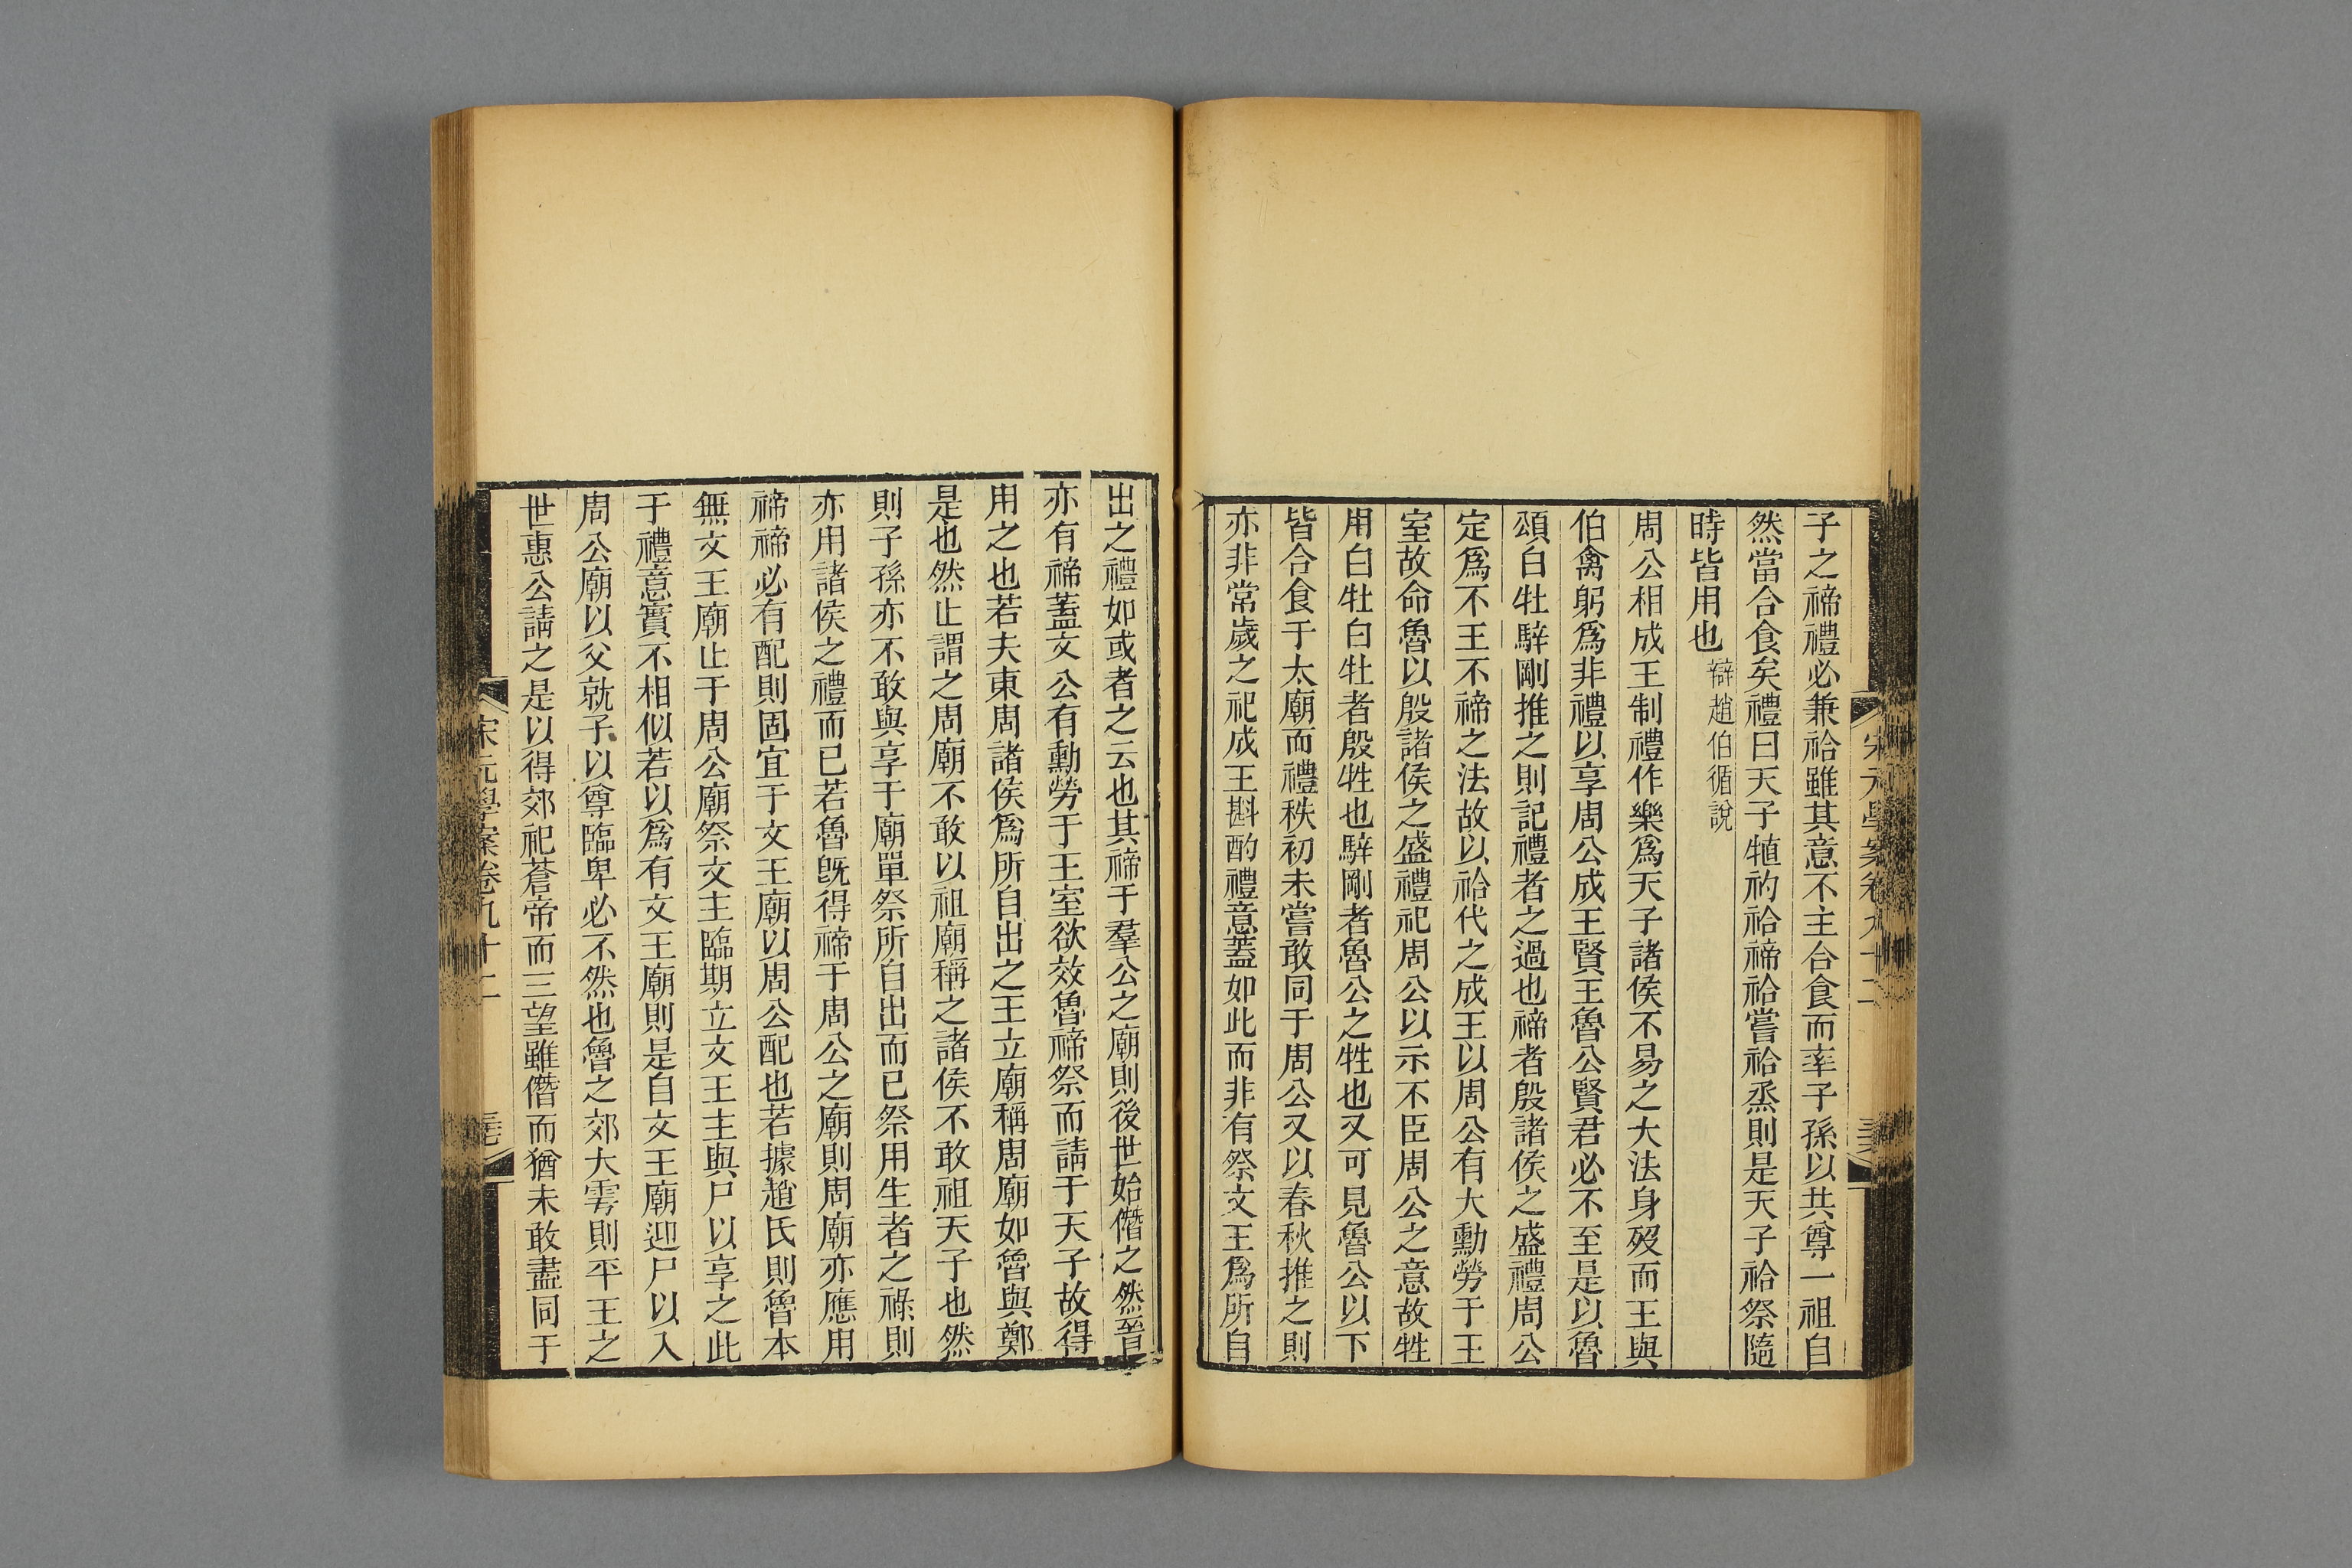 子之禘禮必兼祫雖其意不主合食而率子孫以共尊一祖自
然當合食矣禮曰天子犆礿祫禘祫嘗祫烝則是天子祫祭隨
時皆用也辯趙伯循說
周公相成王制禮作樂爲天子諸侯不易之大法身歿而王與
伯禽躬爲非禮以享周公成王賢王魯公賢君必不至是以魯
頌白牡騂剛推之則記禮者之過也禘者殷諸侯之盛禮周公
定爲不王不禘之法故以祫代之成王以周公有大勳勞于王
室故命魯以殷諸侯之盛禮祀周公以示不臣周公之意故牲
用白牡白牡者殷牲也騂剛者魯公之牲也又可見魯公以下
皆合食于太廟而禮秩初未嘗敢同于周公又以春秋推之則
亦非常歲之祀成王斟酌禮意蓋如此而非有祭文王爲所自
宋元學案卷九十二
出之禮如或者之云也其禘于羣公之廟則後世始僭之然晉
亦有禘蓋文公有勳勞于王室欲效魯禘祭而請于天子故得
用之也若夫東周諸侯爲所自出之王立廟稱周廟如魯與鄭
是也然止謂之周廟不敢以祖廟稱之諸侯不敢祖天子也然
則子孫亦不敢與享于廟單祭所自出而已祭用生者之祿則
亦用諸侯之禮而已若魯旣得禘于周公之廟則周廟亦應用
禘禘必有配則固宜于文王廟以周公配也若據趙氏則魯本
無文王廟止于周公廟祭文主臨期立文王主與尸以享之此
于禮意實不相似若以爲有文王廟則是自文王廟迎尸以入
周公廟以父就子以尊臨卑必不然也魯之郊大雩則平王之
世惠公請之是以得郊祀蒼帝而三望雖僭而猶未敢盡同于
宋元學案卷九十二